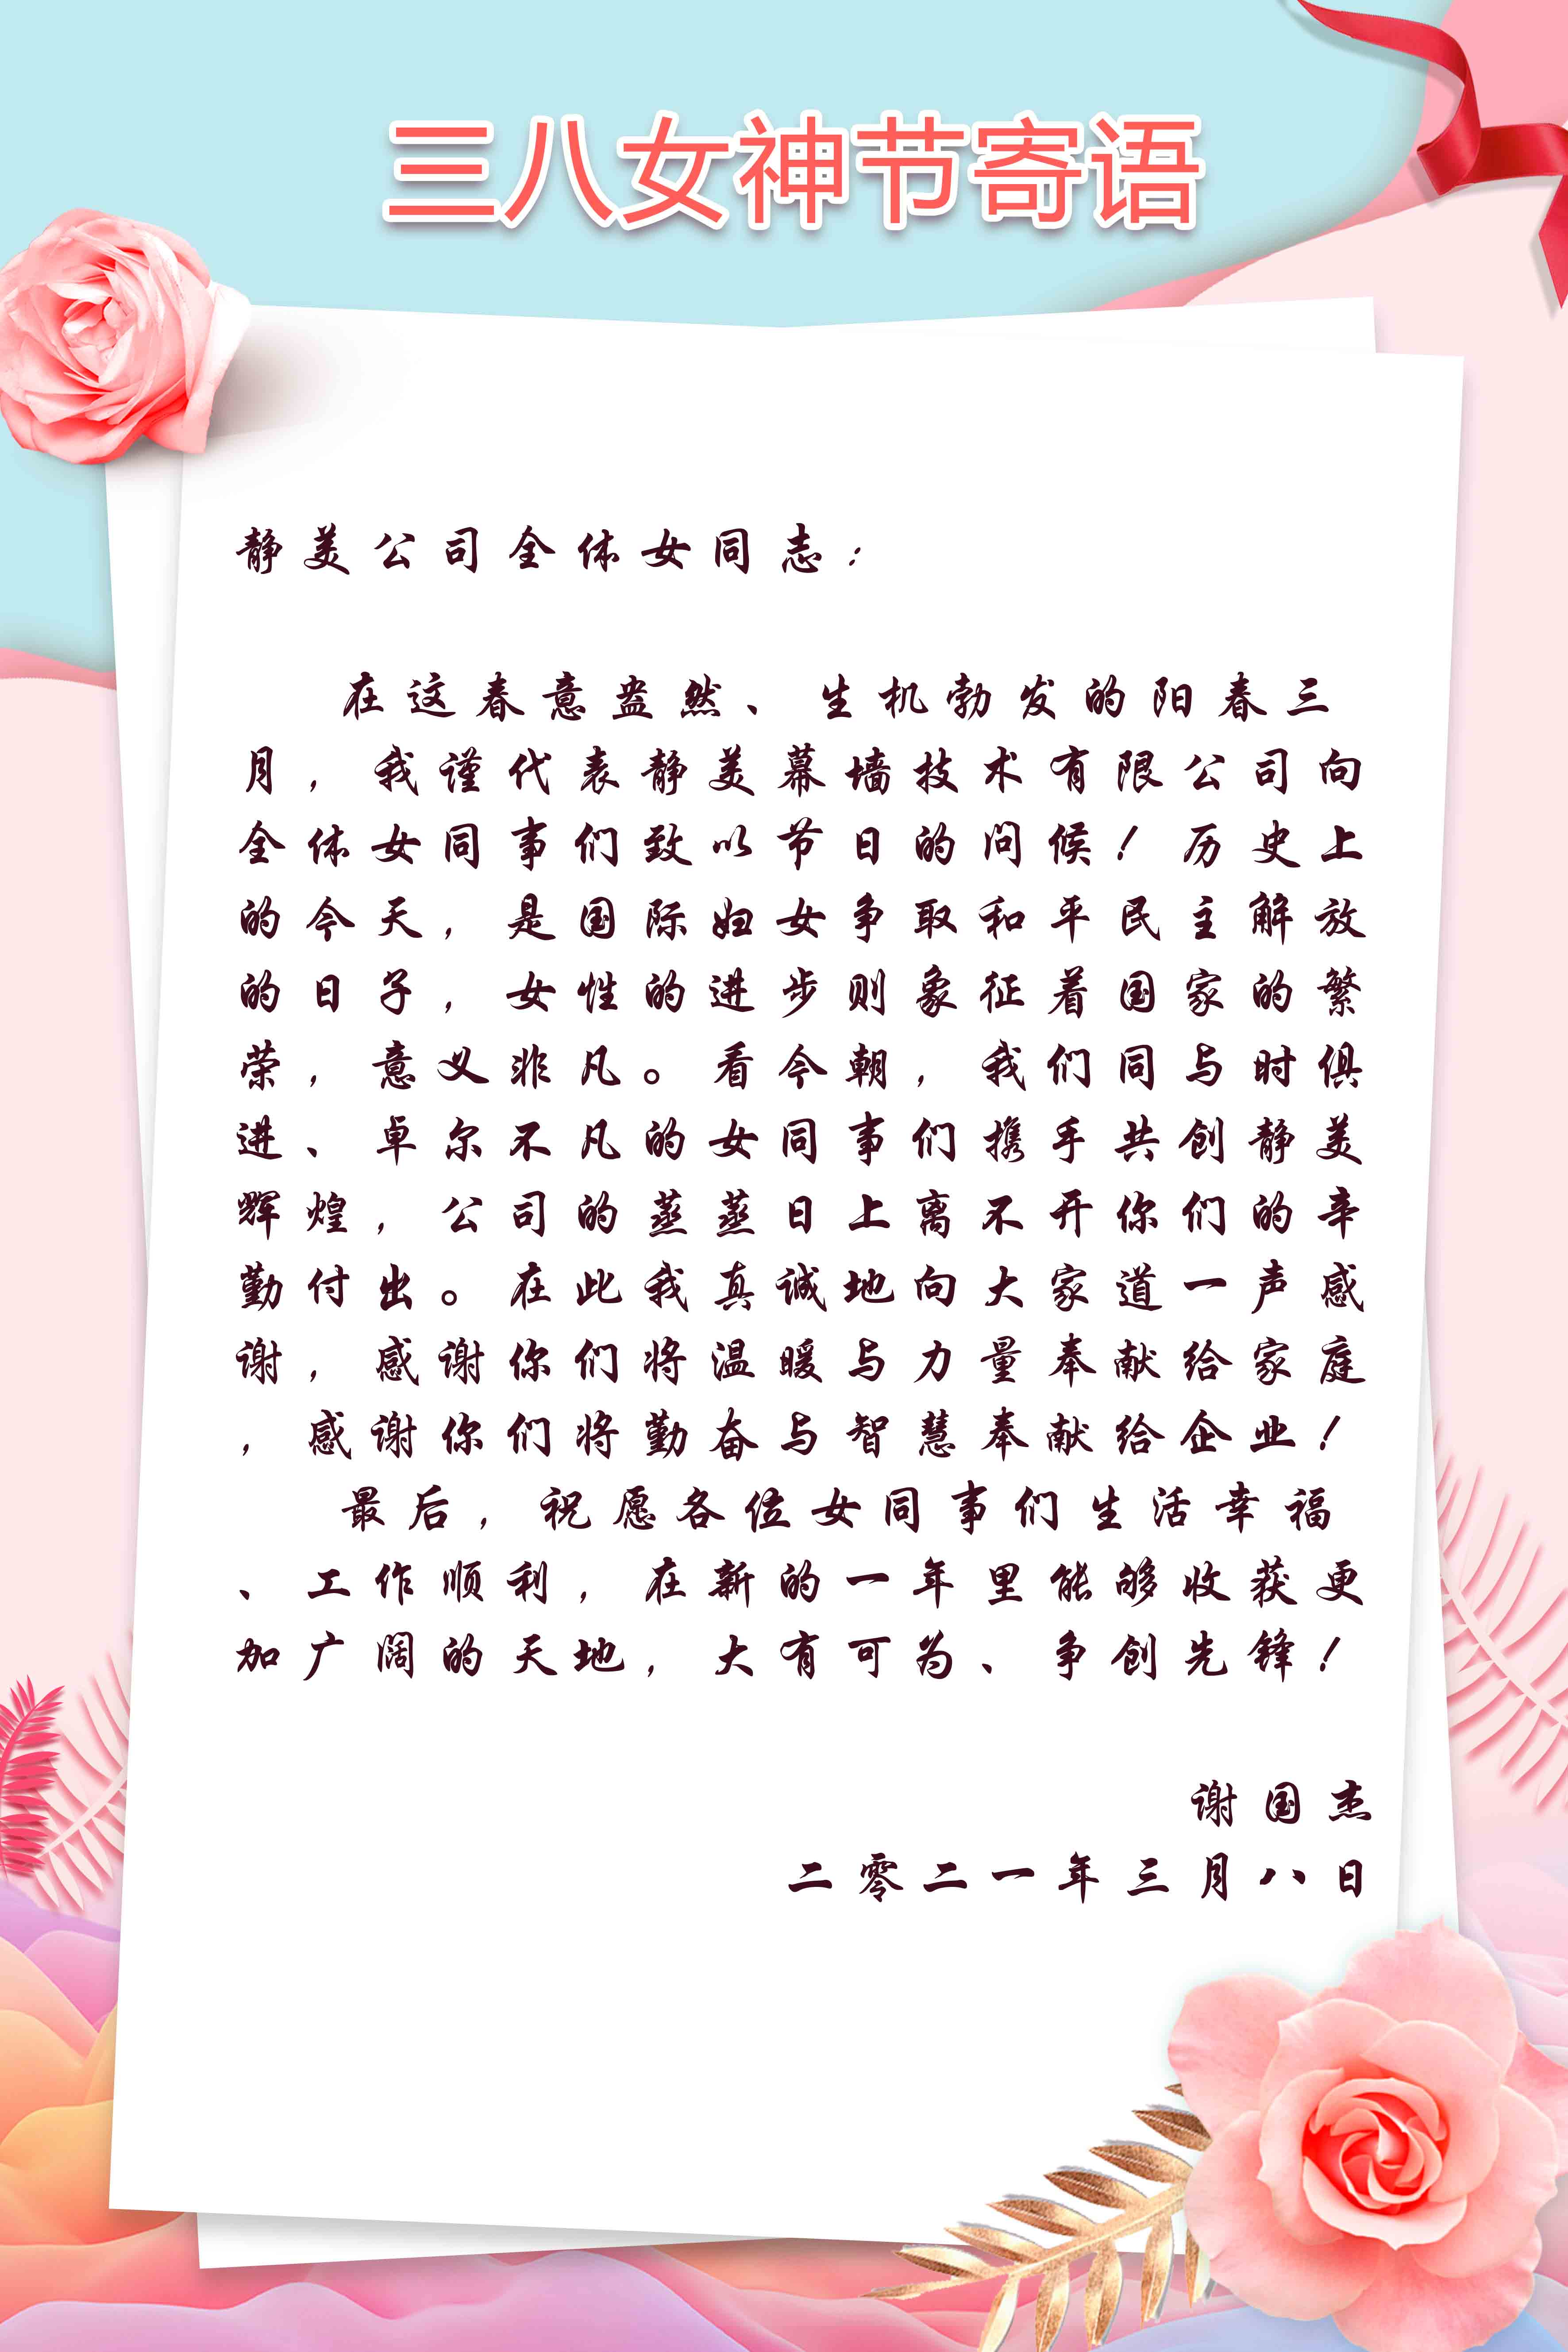 三八女神节寄语
静美公司全体女同志：
在这春意盎然、生机勃发的阳春三
月，我谨代表静美幕墙技术有限公司向
全体女同事们致以节日的问候！历史上
的今天，是国际妇女争取和平民主解放
的日子，女性的进步则象征着国家的繁
荣，意义非凡。看今朝，我们同与时俱
进、卓尔不凡的女同事们携手共创静美
辉煌，公司的蒸蒸日上离不开你们的辛
勤付出。在此我真诚地向大家道一声感
谢，感谢你们将温暖与力量奉献给家庭
，感谢你们将勤奋与智慧奉献给企业！
最后，祝愿各位女同事们生活幸福
、工作顺利，在新的一年里能够收获更
加广阔的天地，大有可为、争创先锋！
谢国杰
二零二一年三月八日